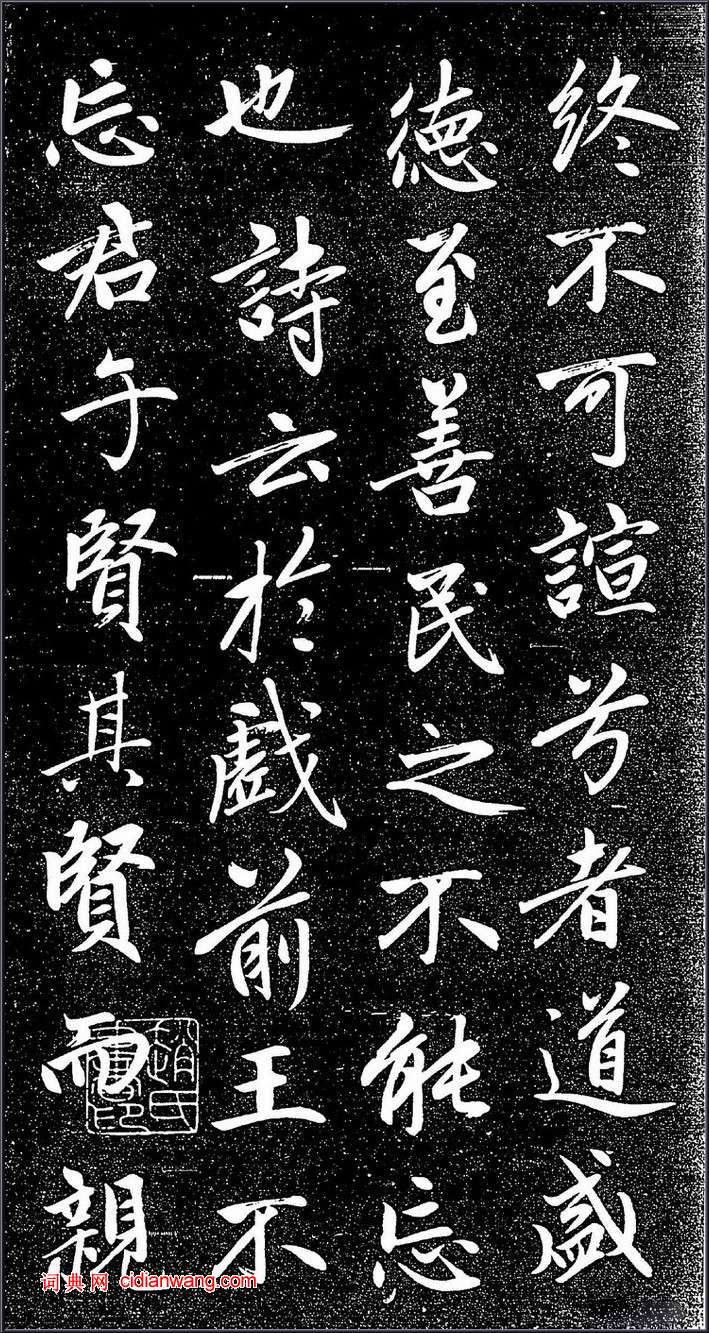 終不可諠兮者道盛
德至善民之不能忘
也詩云於戲前王不
忘君子賢其賢而親
趙氏書印
词典网 cidianwang.com